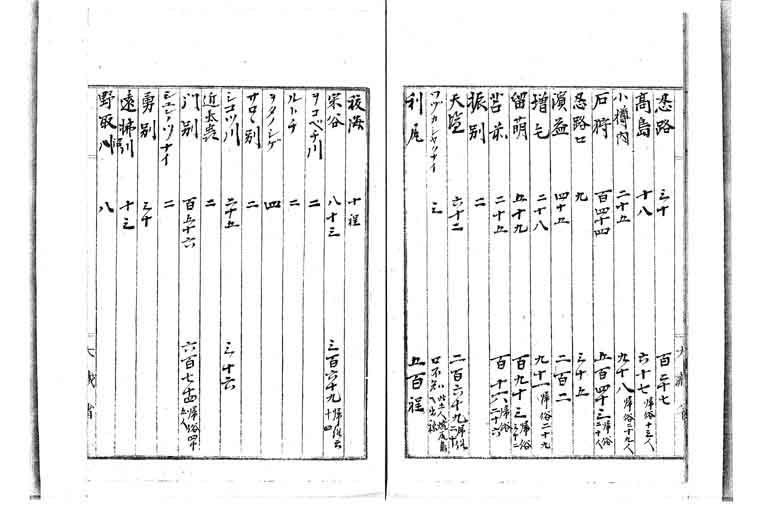 忍路 三十 百二十七
高島 十八 六十七 帰俗十三人
小樽内 二十五 九十八 帰俗二十九人
石狩 百四十四 五百四十三 帰俗二十八人
忍路口 九 三十五
濱益 四十五 二百二
増毛 二十八 九十一 帰俗二十九
留萌 五十九 百九十三 帰俗
苫前 二十五 百十八 帰俗二十六
振別 二
天塩 六十二 二百六十九 帰俗
三 口不知
利尻 五百程
十程
宗谷 八十三 三百六十九 帰俗
ヲコベチ川 二
ルトチ 二
ヲタノシゲ 四
サロヽ別 二
シコツ川 二十五 三十六
二
門別 百五十六 六百七十四 帰俗
二
勇別 三十
十三
野取川 八
大蔵省
大蔵省